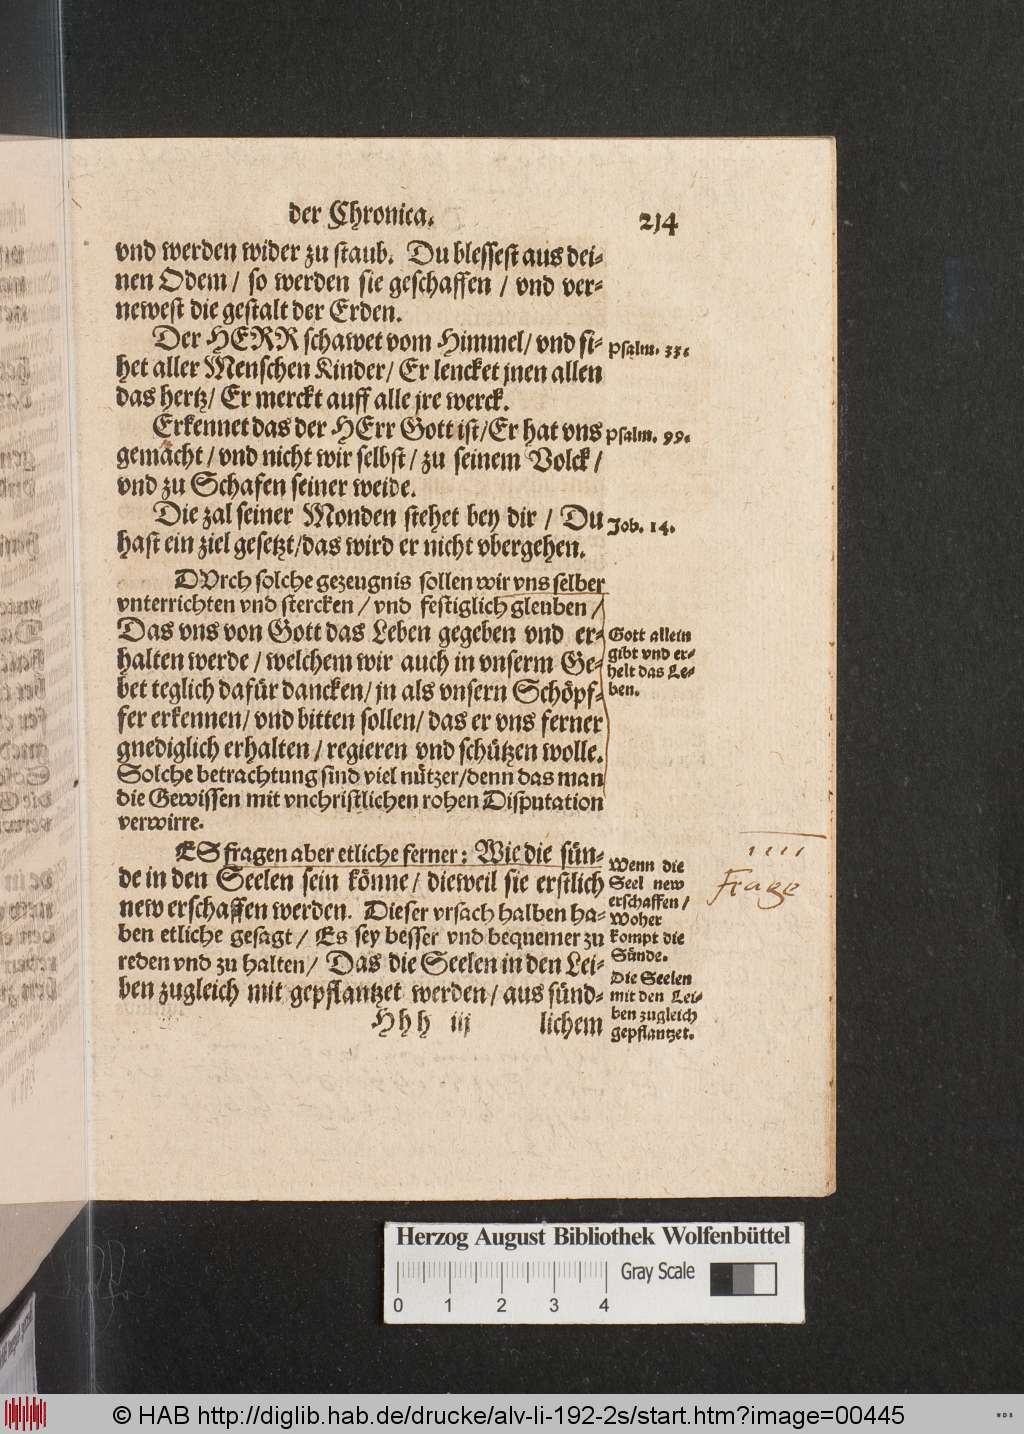 der Chronica. 214
vnd werden wider zu staub. Du blessest aus dei-
nen Odem / so werden sie geschaffen / vnd ver-
newest die gestalt der Erden.
Der HERR schawet vom Himmel / vnd si-
Psalm. 33.
het aller Menschen Kinder / Er lencket jnen allen
das hertz / Er merckt auff alle jre werck.
Erkennet das der HErr Gott ist / Er hat vns
Psalm. 99.
gemacht / vnd nicht wir selbst / zu seinem Volck /
vnd zu Schafen seiner weide.
Die zal seiner Monden stehet bey dir / Du
Job. 14.
hast ein ziel gesetzt / das wird er nicht vbergehen.
DVrch solche gezeugnis sollen wir vns selber
vnterrichten vnd stercken / vnd festiglich gleuben /
Das vns von Gott das Leben gegeben vnd er-
halten werde / welchem wir auch in vnserm Ge-
bet teglich dafür dancken / jn als vnsern Schöpf-
fer erkennen / vnd bitten sollen / das er vns ferner
gnediglich erhalten / regieren vnd schützen wolle.
Solche betrachtung sind viel nützer / denn das man
die Gewissen mit vnchristlichen rohen Disputation
verwirre.
Gott allein
gibt vnd er-
helt das Le-
ben.
ES fragen aber etliche ferner: Wie die sün-
de in den Seelen sein könne / dieweil sie erstlich
new erschaffen werden. Dieser vrsach halben ha-
ben etliche gesagt / Es sey besser vnd bequemer zu
reden vnd zu halten / Das die Seelen in den Lei-
ben zugleich mit gepflantzet werden / aus sünd-
Wenn die
Seel new
erschaffen /
Woher
kompt die
Sünde.
Die Seelen
mit den Lei-
ben zugleich
gepflantzet.
Frage
Hhh iij lichem
Herzog August Bibliothek Wolfenbüttel
Gray Scale
0 1 2 3 4
© HAB http://diglib.hab.de/drucke/alv-li-192-2s/start.htm?image=00445